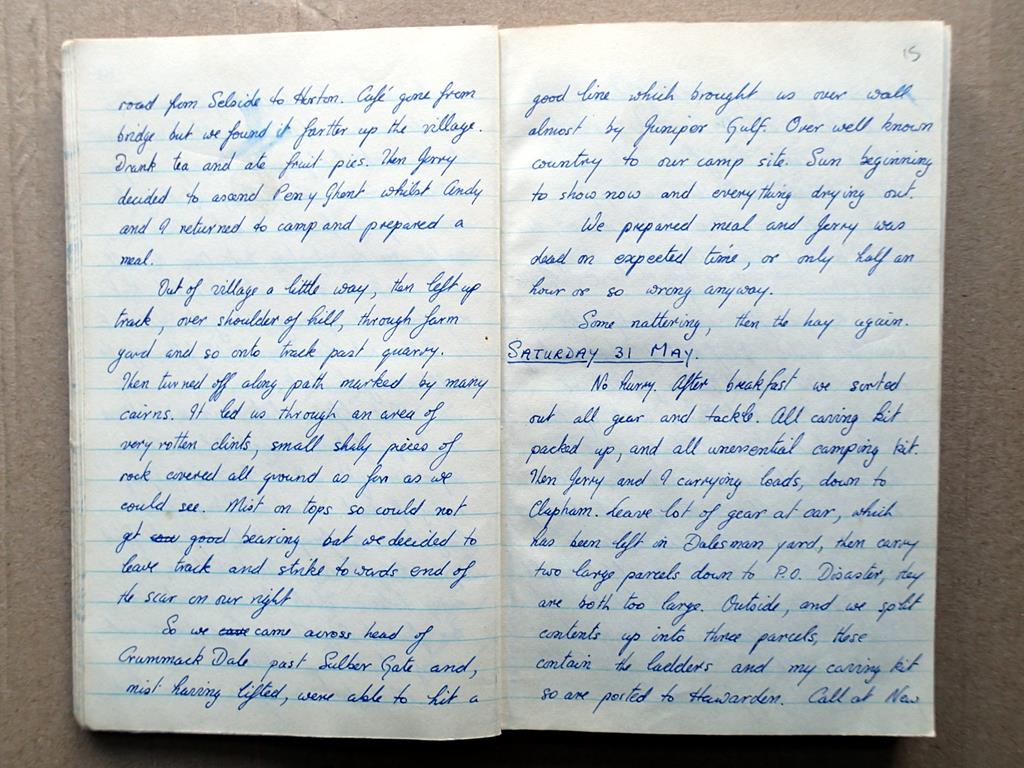 road from Selside to Horton. Café gone from
bridge but we found it farther up the village.
Drank tea and ate fruit pies. Then Jerry
decided to ascend Pen y Ghent whilst Andy
and I returned to camp and prepared a
meal.
Out of village a little way, then left up
track, over shoulder of hill, through farm
yard and so onto track past quarry.
Then turned off along path marked by many
cairns. It led us through an area of
very rotten clints, small shaly pieces of
rock covered all ground as far as we
could see. Mist on tops so could not
get good bearing but we decided to
leave track and strike towards end of
the scar on our right
So we came across head of
Crummack Dale past Sulber Gate and,
mist having lifted, were able to hit a
15
good line which brought us over wall
almost by Juniper Gulf. Over well known
country to our camp site. Sun beginning
to show now and everything drying out.
We prepared meal and Jerry was
dead on expected time, or only half an
hour or so wrong anyway.
Some nattering, then the hay again.
SATURDAY 31 MAY.
No hurry. After breakfast we sorted
out all gear and tackle. All caving kit
packed up, and all unessential camping kit.
Then Jerry and I carrying loads, down to
Clapham. Leave lot of gear at car, which
has been left in Dalesman yard, then carry
two large parcels down to P.O. Disaster, they
are both too large. Outside, and we split
contents up into three parcels, these
contain the ladders and my caving kit
so are posted to Hawarden. Call at New